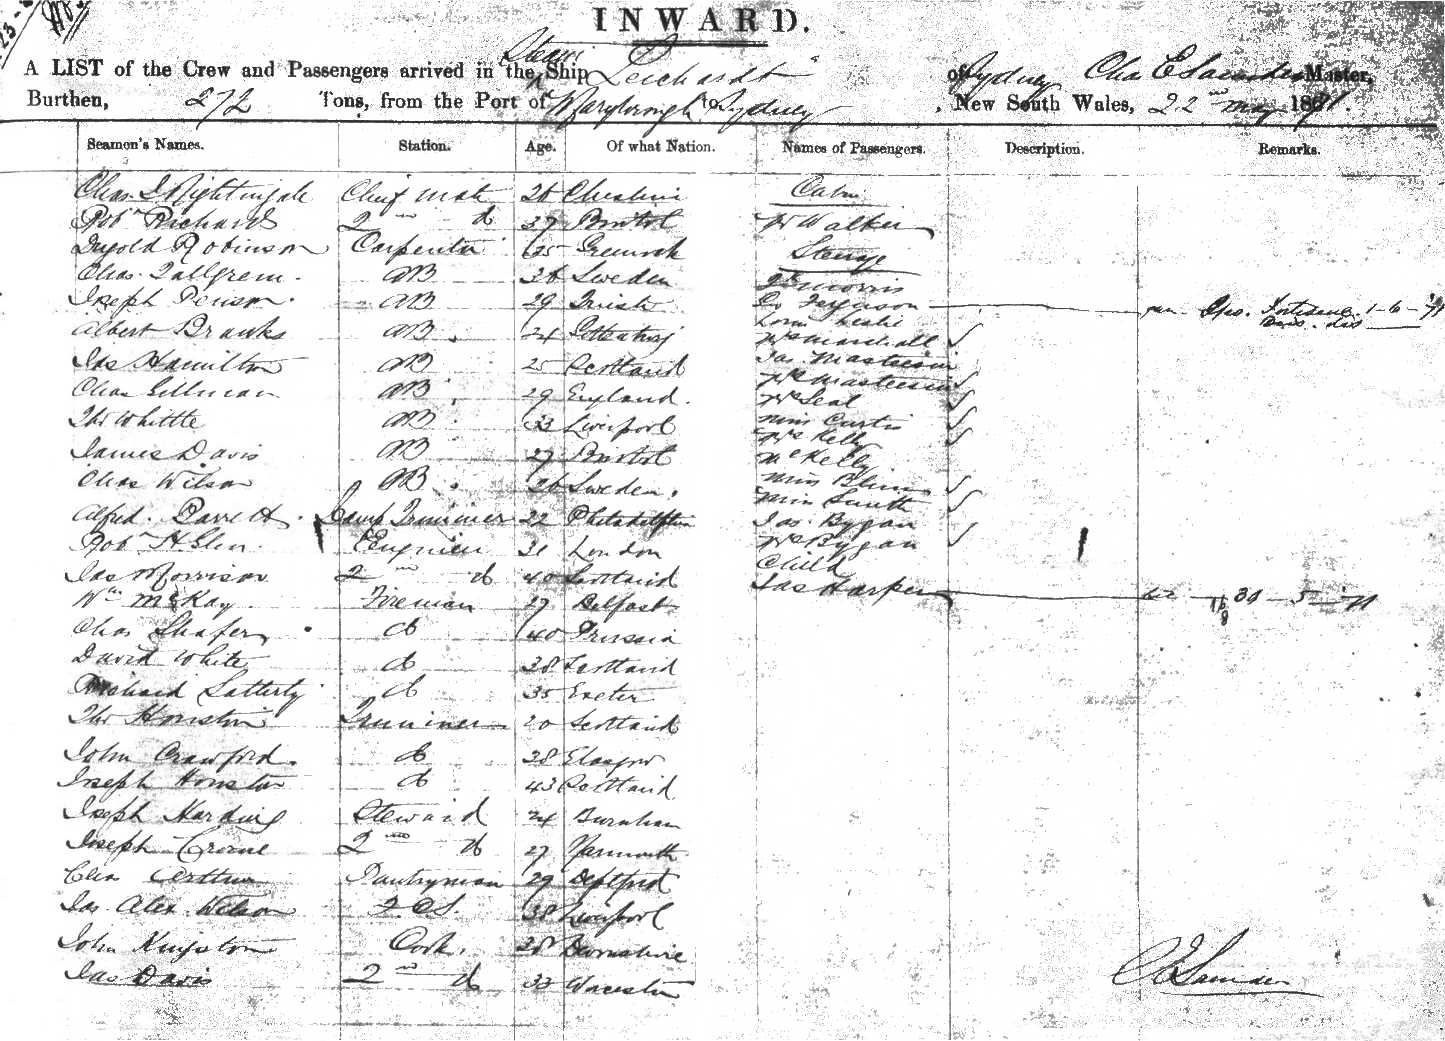 INWARD.
A LIST of the Crew and Passengers arrived in the Steam Ship Leichardt of Sydney Chas E Saunders Master,
Burthen, 272 Tons, from the Port of Maryborough to Sydney, New South Wales, 22nd May 1871.
Seamen's Names. Station. Age. Of what Nation. Names of Passengers. Description. Remarks.
Chas I Nightingale Chief Mate Cheshire Cabin
Robt Richards 2nd do Bristol Mr Walker
Robinson Carpenter Greenock Steerage
Chas Tallgren AB Sweden Morris
Joseph AB 29 Irish Ferguson 1-6-71
Albert Brooks AB 24 Leslie
Jas Hamilton AB 25 Scotland Mrs Marshall
Chas Gillman AB 29 England Jas Masterson
Thos Whittle AB 33 Liverpool Mrs Masterson
James Davis AB 27 Bristol Mrs Seal
Chas Wilson AB 26 Sweden Miss Curtis
Mrs Kelly
Mr Kelly
Miss
Miss Smith
Alfred Barrett Lamp Trimmer 22 Philadelphia Jas Bygan
Robt H Glen Engineer 31 London Mrs Bygan
Child
Jas Morrison 2nd do 40 Scotland Jas Harper 30-5-71
Wm McKay Fireman 27 Belfast
Chas Shafer do 40 Prussia
David White do 38 Scotland
Richard Latterly do 35 Exeter
Thos Houston Trimmer 20 Scotland
John Crawford do 38 Glasgow
Joseph Houston do 43 Scotland
Joseph Harding Steward 24 Burnham
Joseph Crowe 2nd do 27 Yarmouth
Arthur Pantryman 29 Deptford
Jas Alex Wilson 2 CS. 38 Liverpool
John Kingston Cook 28 Devonshire
Jas Davis 2nd do 33 Worcester
C E Saunders